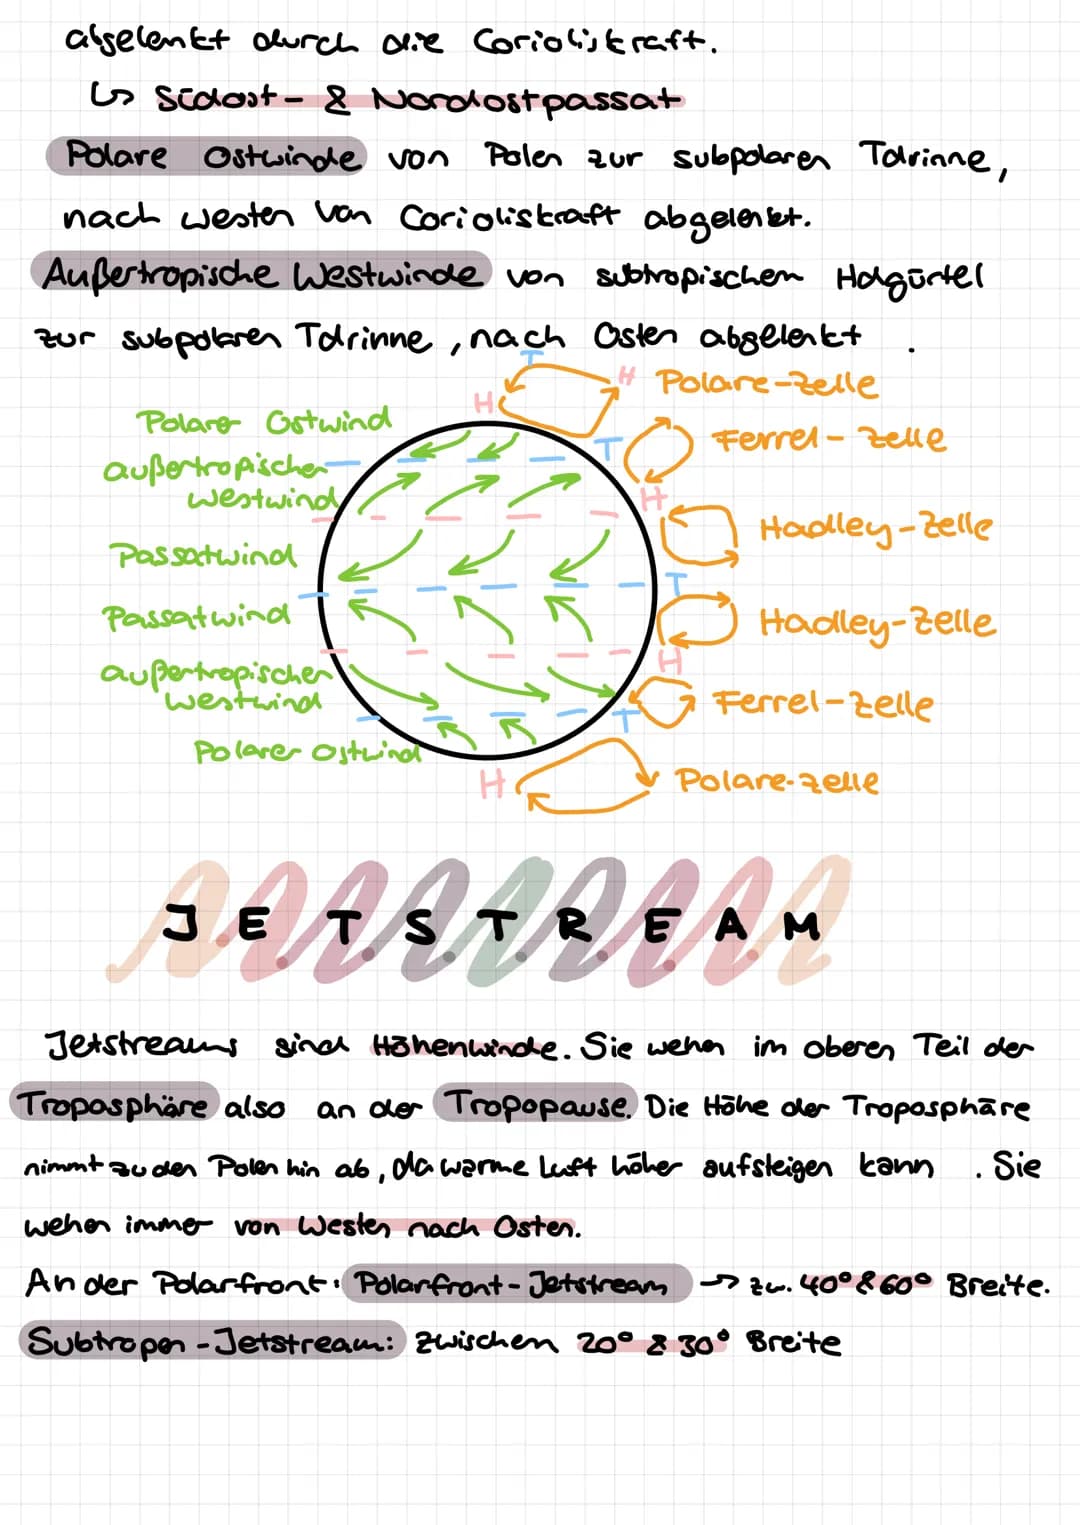 abgelenkt durch die Corioliskraft.
↳ Südost- & Nordostpassat
Polare Ostwinde von Polen zur subpolaren Tdrinne,
nach westen von Corioliskraft abgelenkt.
Außertropische Westwinde von subtropischem Hdgürtel
zur subpolaren Tdrinne, nach Osten abgelenkt.
T
H Polare-Zelle
H
Polare Ostwind
T Ferrel-Zelle
außertropischer
westwind
H
Hadley-Zelle
Passatwind
T
Passatwind
Hadley-Zelle
H
außertropischer
westwind
Ferrel-Zelle
T
Polarer Ostwind
H
Polare-zelle
JETSTREAM
Jetstreams sind Höhenwinde. Sie wehen im oberen Teil der
Troposphäre also an der Tropopause. Die Höhe der Troposphäre
nimmt zu den Polen hin ab, da warme Luft höher aufsteigen kann. Sie
wehen immer von Westen nach Osten.
An der Polarfront: Polarfront-Jetstream → zw. 40° & 60° Breite.
Subtropen-Jetstream: zwischen 20° & 30° Breite